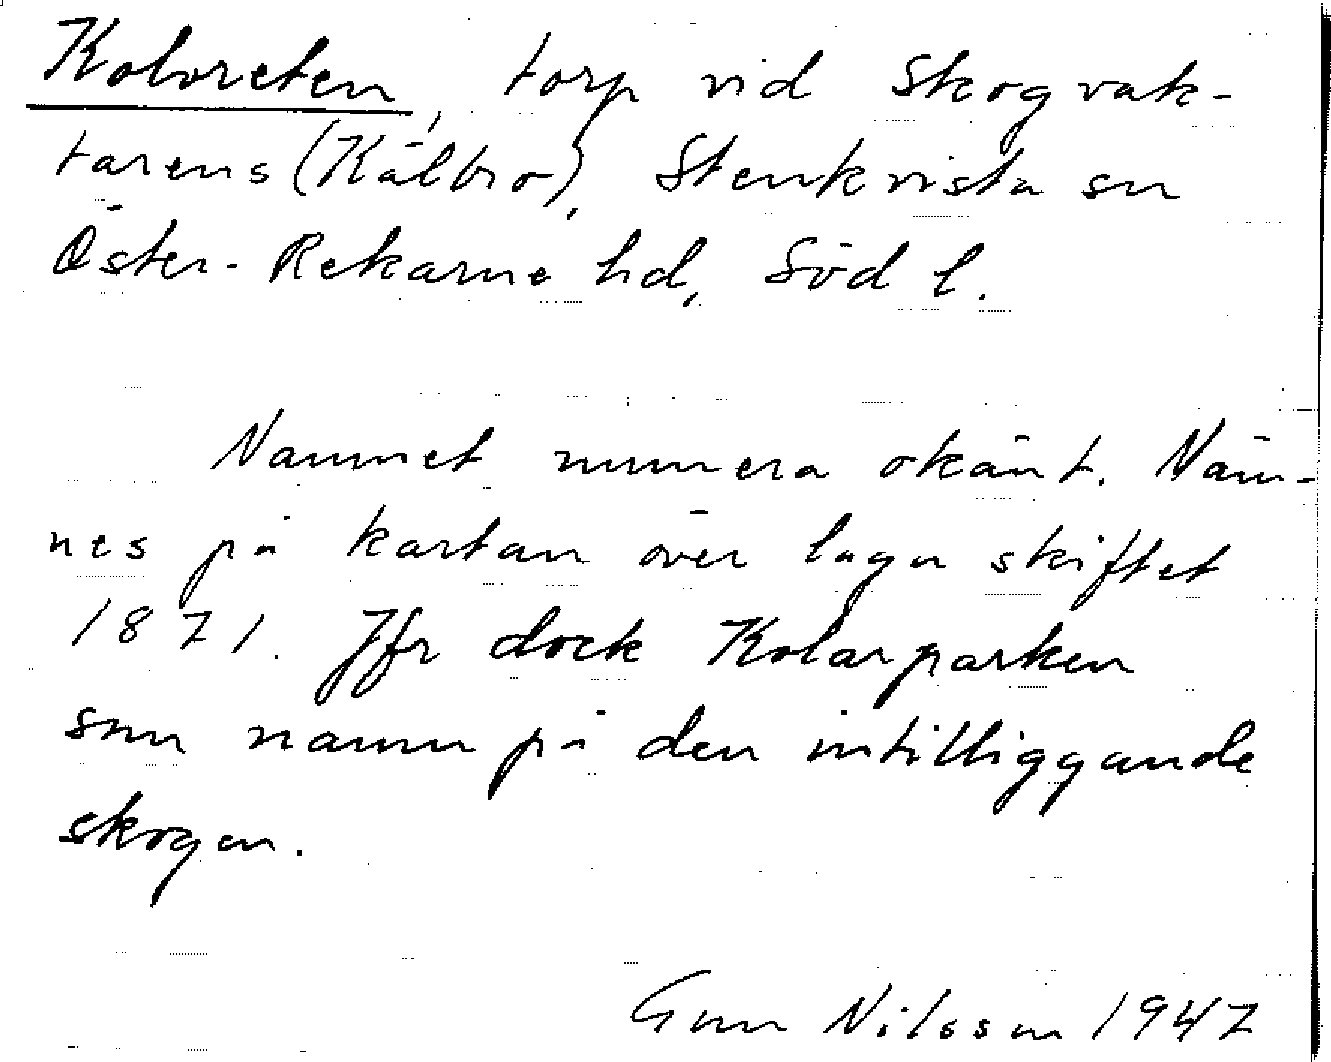 Kolvreten, torp vid Skogvak-
tarens (Kälbro), Stenkvista sn
Öster-Rekarne hd, Söd l.
Namnet numera okänt. Näm-
nes på kartan över laga skiftet
1871. Jfr dock Kolarparken
som namn på den intilliggande
skogen.
Gun Nilsson 1947